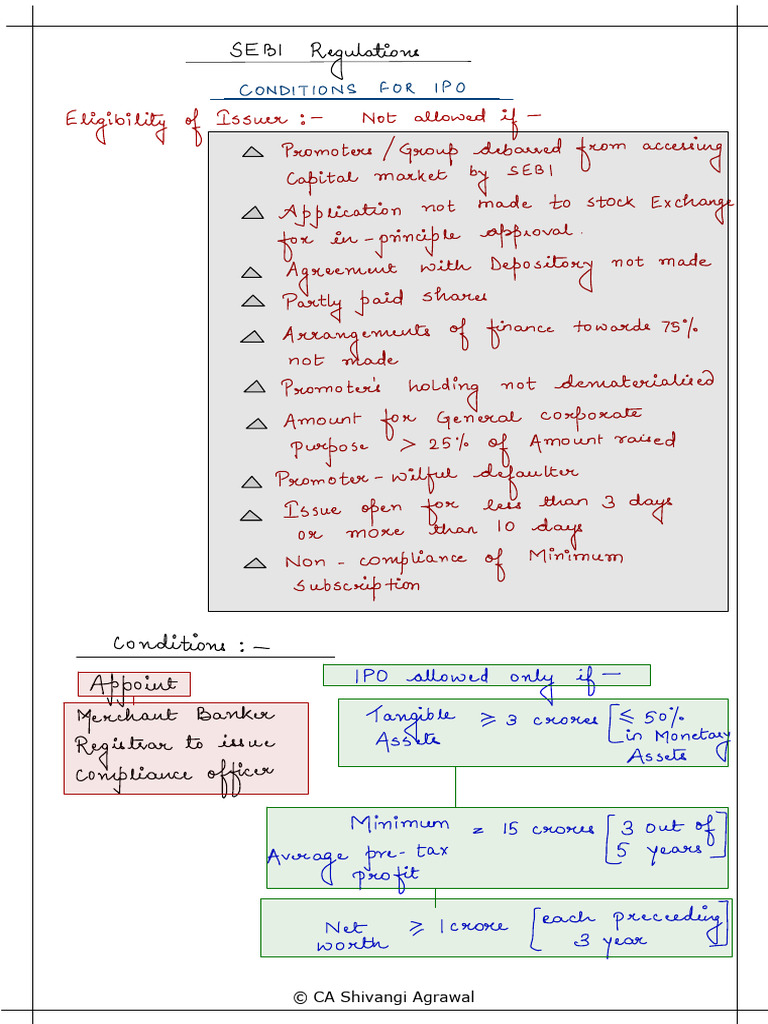 SEBI Regulations
CONDITIONS FOR IPO
Eligibility of Issuer :- Not allowed if -
△ Promoters / Group debarred from accessing
Capital market by SEBI
△ Application not made to stock Exchange
for in-principle approval.
△ Agreement with Depository not made
△ Partly paid shares
△ Arrangements of finance towards 75%
not made
△ Promoter's holding not dematerialised
△ Amount for General corporate
purpose > 25% of Amount raised
△ Promoter - wilful defaulter
△ Issue open for less than 3 days
or more than 10 days
△ Non - compliance of Minimum
subscription
Conditions :-
Appoint
Merchant Banker
Registrar to issue
Compliance officer
IPO allowed only if -
Tangible Assets ≥ 3 crores [≤ 50%
in Monetary
Assets
Minimum
Average pre-tax
profit = 15 crores [3 out of
5 years]
Net
worth ≥ 1 crore [each preceeding
3 year]
© CA Shivangi Agrawal